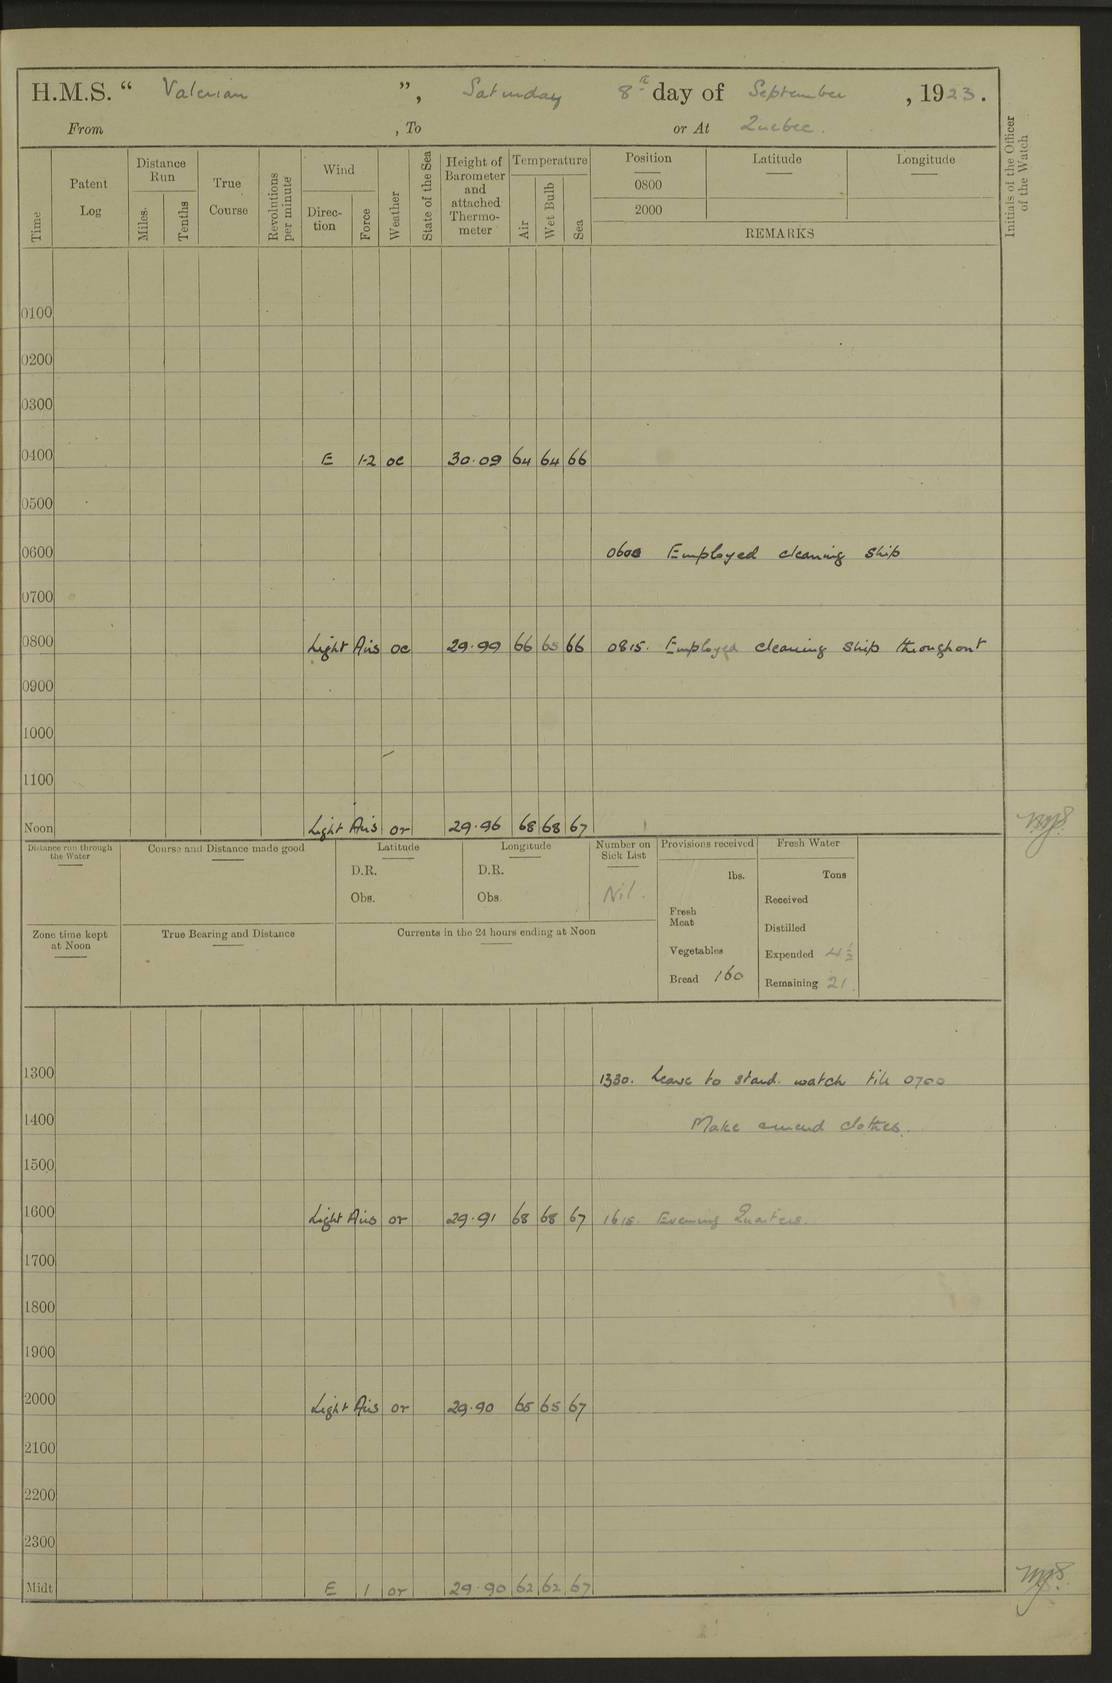 H.M.S. “ Valerian ”, Saturday 8th day of September, 1923.
From , To or At Quebec.
Time
Patent Log
Distance Run
Miles.
Tenths
True Course
Revolutions per minute
Wind
Direc-tion
Force
Weather
State of the Sea
Height of Barometer and attached Thermo-meter
Temperature
Air
Wet Bulb
Sea
Position
0800
2000
Latitude
Longitude
REMARKS
Initials of the Officer of the Watch
0100
0200
0300
0400 E 1-2 oc 30.09 64 64 66
0500
0600 0600 Employed cleaning ship
0700
0800 Light Airs oc 29.99 66 65 66 0815. Employed cleaning ship throughout
0900
1000
1100
Noon Light Airs or 29.96 68 68 67
Distance run through the Water
Course and Distance made good
Latitude
D.R.
Obs.
Longitude
D.R.
Obs.
Number on Sick List
Nil.
Provisions received
lbs.
Fresh Meat
Vegetables
Bread 160
Fresh Water
Tons
Received
Distilled
Expended 4½
Remaining 21.
Zone time kept at Noon
True Bearing and Distance
Currents in the 24 hours ending at Noon
1300 1330. Leave to stand. watch till 0700
1400 Make amend clothes.
1500
1600 Light Airs or 29.91 68 68 67 1615. Evening Quarters.
1700
1800
1900
2000 Light Airs or 29.90 65 65 67
2100
2200
2300
Midt E 1 or 29.90 62 62 67